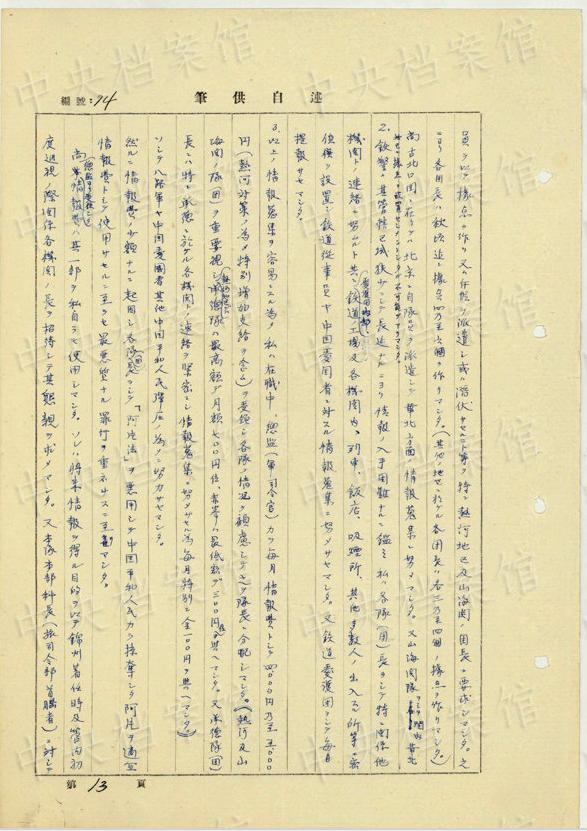 述自供筆
編號:74
員ヲ以テ據点ヲ作リ又ハ存能ヲ派遣シ或ハ潜伏サセルコト等ヲ特ニ熱河地区及山海関ノ団長ニ要求シマシタ。之
ニヨリ各団長ハ秋頃迄ニ據点四乃至六個ヲ作リマシタ(其他ノ地ニ於ケル各団長ハ各三乃至四個ノ據点ヲ作リマシタ)
尚古北口団ニ在リテハ北京ニ自隊員ヲ派遣シテ華北方面ノ情報蒐集ニ努メマシタ。又山海関隊
2. 鉄警ハ其管轄区域狭少ニシテ長延ナルニヨリ情報ノ入手困難ナルニ鑑ミ私ハ各隊(団)長ヲシテ特ニ関係他
機関トノ連絡ニ努ムルト共ニ鉄道工場及各機関内、列車、飯店、吸煙所、其他多数人ノ出入スル所等ニ密
偵ヲ設置シ鉄道従事員ヤ中国愛国者ニ対スル情報蒐集ニ努メサセマシタ。又鉄道愛護団ヲシテ毎日
提報サセマシタ。
3. 以上ノ情報蒐集ヲ容易ニスル為メ私ハ在職中、総監(第 司令官)カラ毎月情報費トシテ四、〇〇〇円乃至五、〇〇〇
円(熱河対策ノ為メ特別増加支給ヲ含ム)ヲ受領シ各隊ノ情況ヲ顧慮シテ之ヲ隊長ニ分配シマシタ。(熱河及山
海関ノ隊団ヲ重要視シ承徳隊ハ最高額デ月額七〇〇円位、 ハ最低額デ三〇〇円位ヲ与ヘマシタ。又承徳隊(団)
長ニハ特ニ承徳ニ於ケル各機関ノ連絡ヲ緊密ニシ情報蒐集ニ努メサセル為毎月特別ニ金一〇〇円ヲ与ヘマシタ)
ソシテ八路軍ヤ中国愛国者其他中国平和人民弾圧ノ為メニ努力サセマシタ。
然ルニ情報費ノ少額ナルニ起因シ各隊(団)長ヲシテ「阿片法」ヲ悪用シテ中国平和人民カラ掠奪シタ阿片ヲ適宜
情報費トシテ使用サセルニ至ラセ最悪質ナル罪行ヲ重ネサスニ至リマシタ。
尚本情報費ハ其一部ヲ私自ラモ使用シマシタ。ソレハ将来情報ヲ得ル目的ヲ以テ錦州着任時及管内初
度巡視ノ際関係各機関ノ長ヲ招待シテ其懇親ヲ求メマシタ。又本隊本部科長(旅司令部首職者)ニ対シテ
第 13 頁
中央档案馆